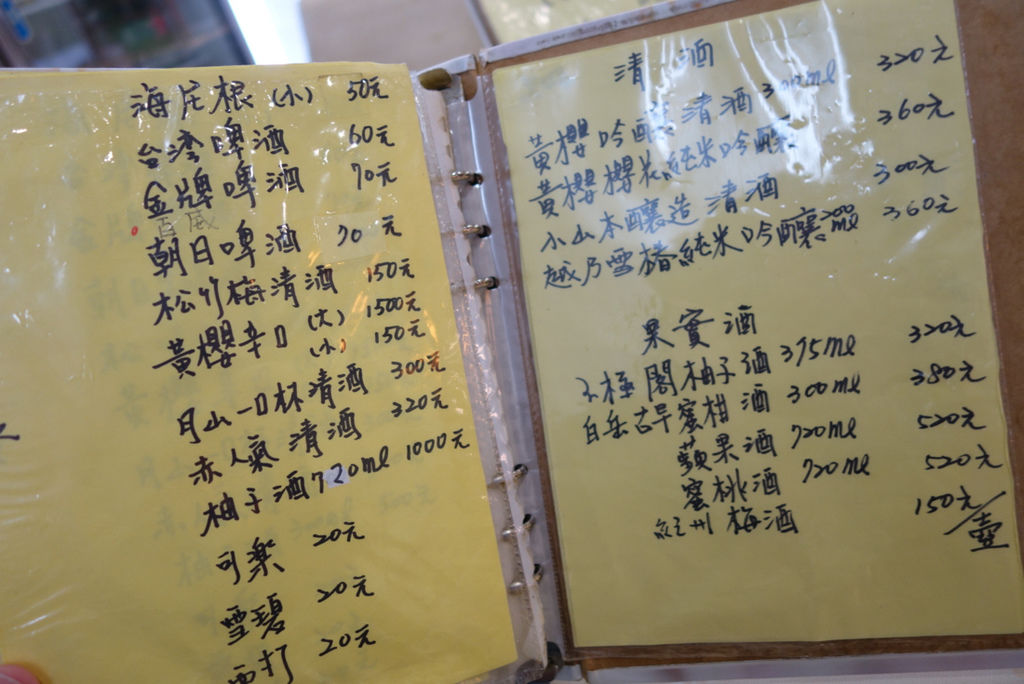 海尼根(小) 50元
台湾啤酒 60元
金牌啤酒 70元
百威
朝日啤酒 70元
松竹梅清酒 150元
黃櫻辛口 (大) 1500元
(小) 150元
月山一口杯清酒 300元
赤人氣清酒 320元
柚子酒720ml 1000元
可樂 20元
雪碧 20元
西打 20元
清酒
黃櫻吟釀清酒300ml 320元
黃櫻櫻米純米吟釀 360元
小山本釀造清酒 300元
越乃雪椿純米吟釀300ml 360元
果實酒
極閣柚子酒375ml 320元
白岳古早蜜柑酒300ml 380元
蘋果酒720ml 520元
蜜桃酒720ml 520元
紀州梅酒 150元/壺